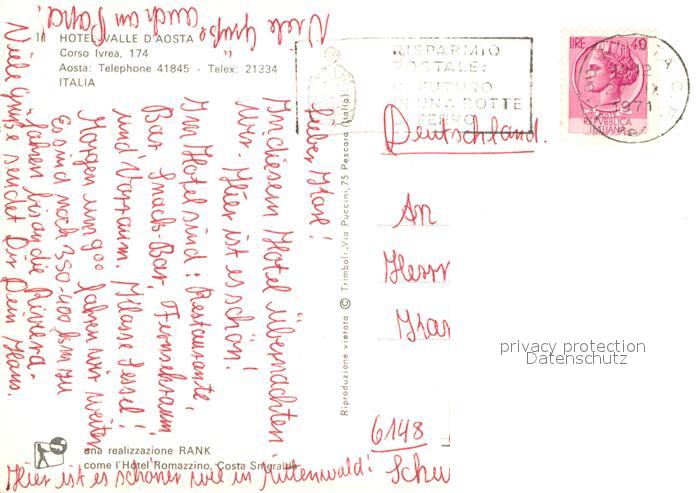 HOTEL VALLE D'AOSTA
Corso Ivrea, 174
Aosta: Telephone 41845 - Telex: 21334
ITALIA
Viele Grüße auch an Papa!
Lieber Klaxe!
In diesem Hotel übernachten
wir. Hier ist es schön!
Im Hotel sind: Restaurante,
Bar, Snack-Bar, Fernsehraum
und Vorraum. Klasse Sessel!
Morgen um 9oo fahren wir weiter
Es sind noch 350-400 km zu
fahren bis an die Riviera.
Viele Grüße sendet Dir Dein Hans.
Hier ist es schöner wie in Mittenwald!
una realizzazione RANK
come l'Hotel Romazzino, Costa Smeralda
Riproduzione vietata © Trimboli, Via Puccini, 75 Pescara (Italia)
RISPARMIO
POSTALE:
IL FUTURO
IN UNA BOTTE
DI FERRO
LIRE 40
1971
REPVBBLICA
ITALIANA
Deutschland.
An
Herrn
Klar
6148
Schu
privacy protection
Datenschutz